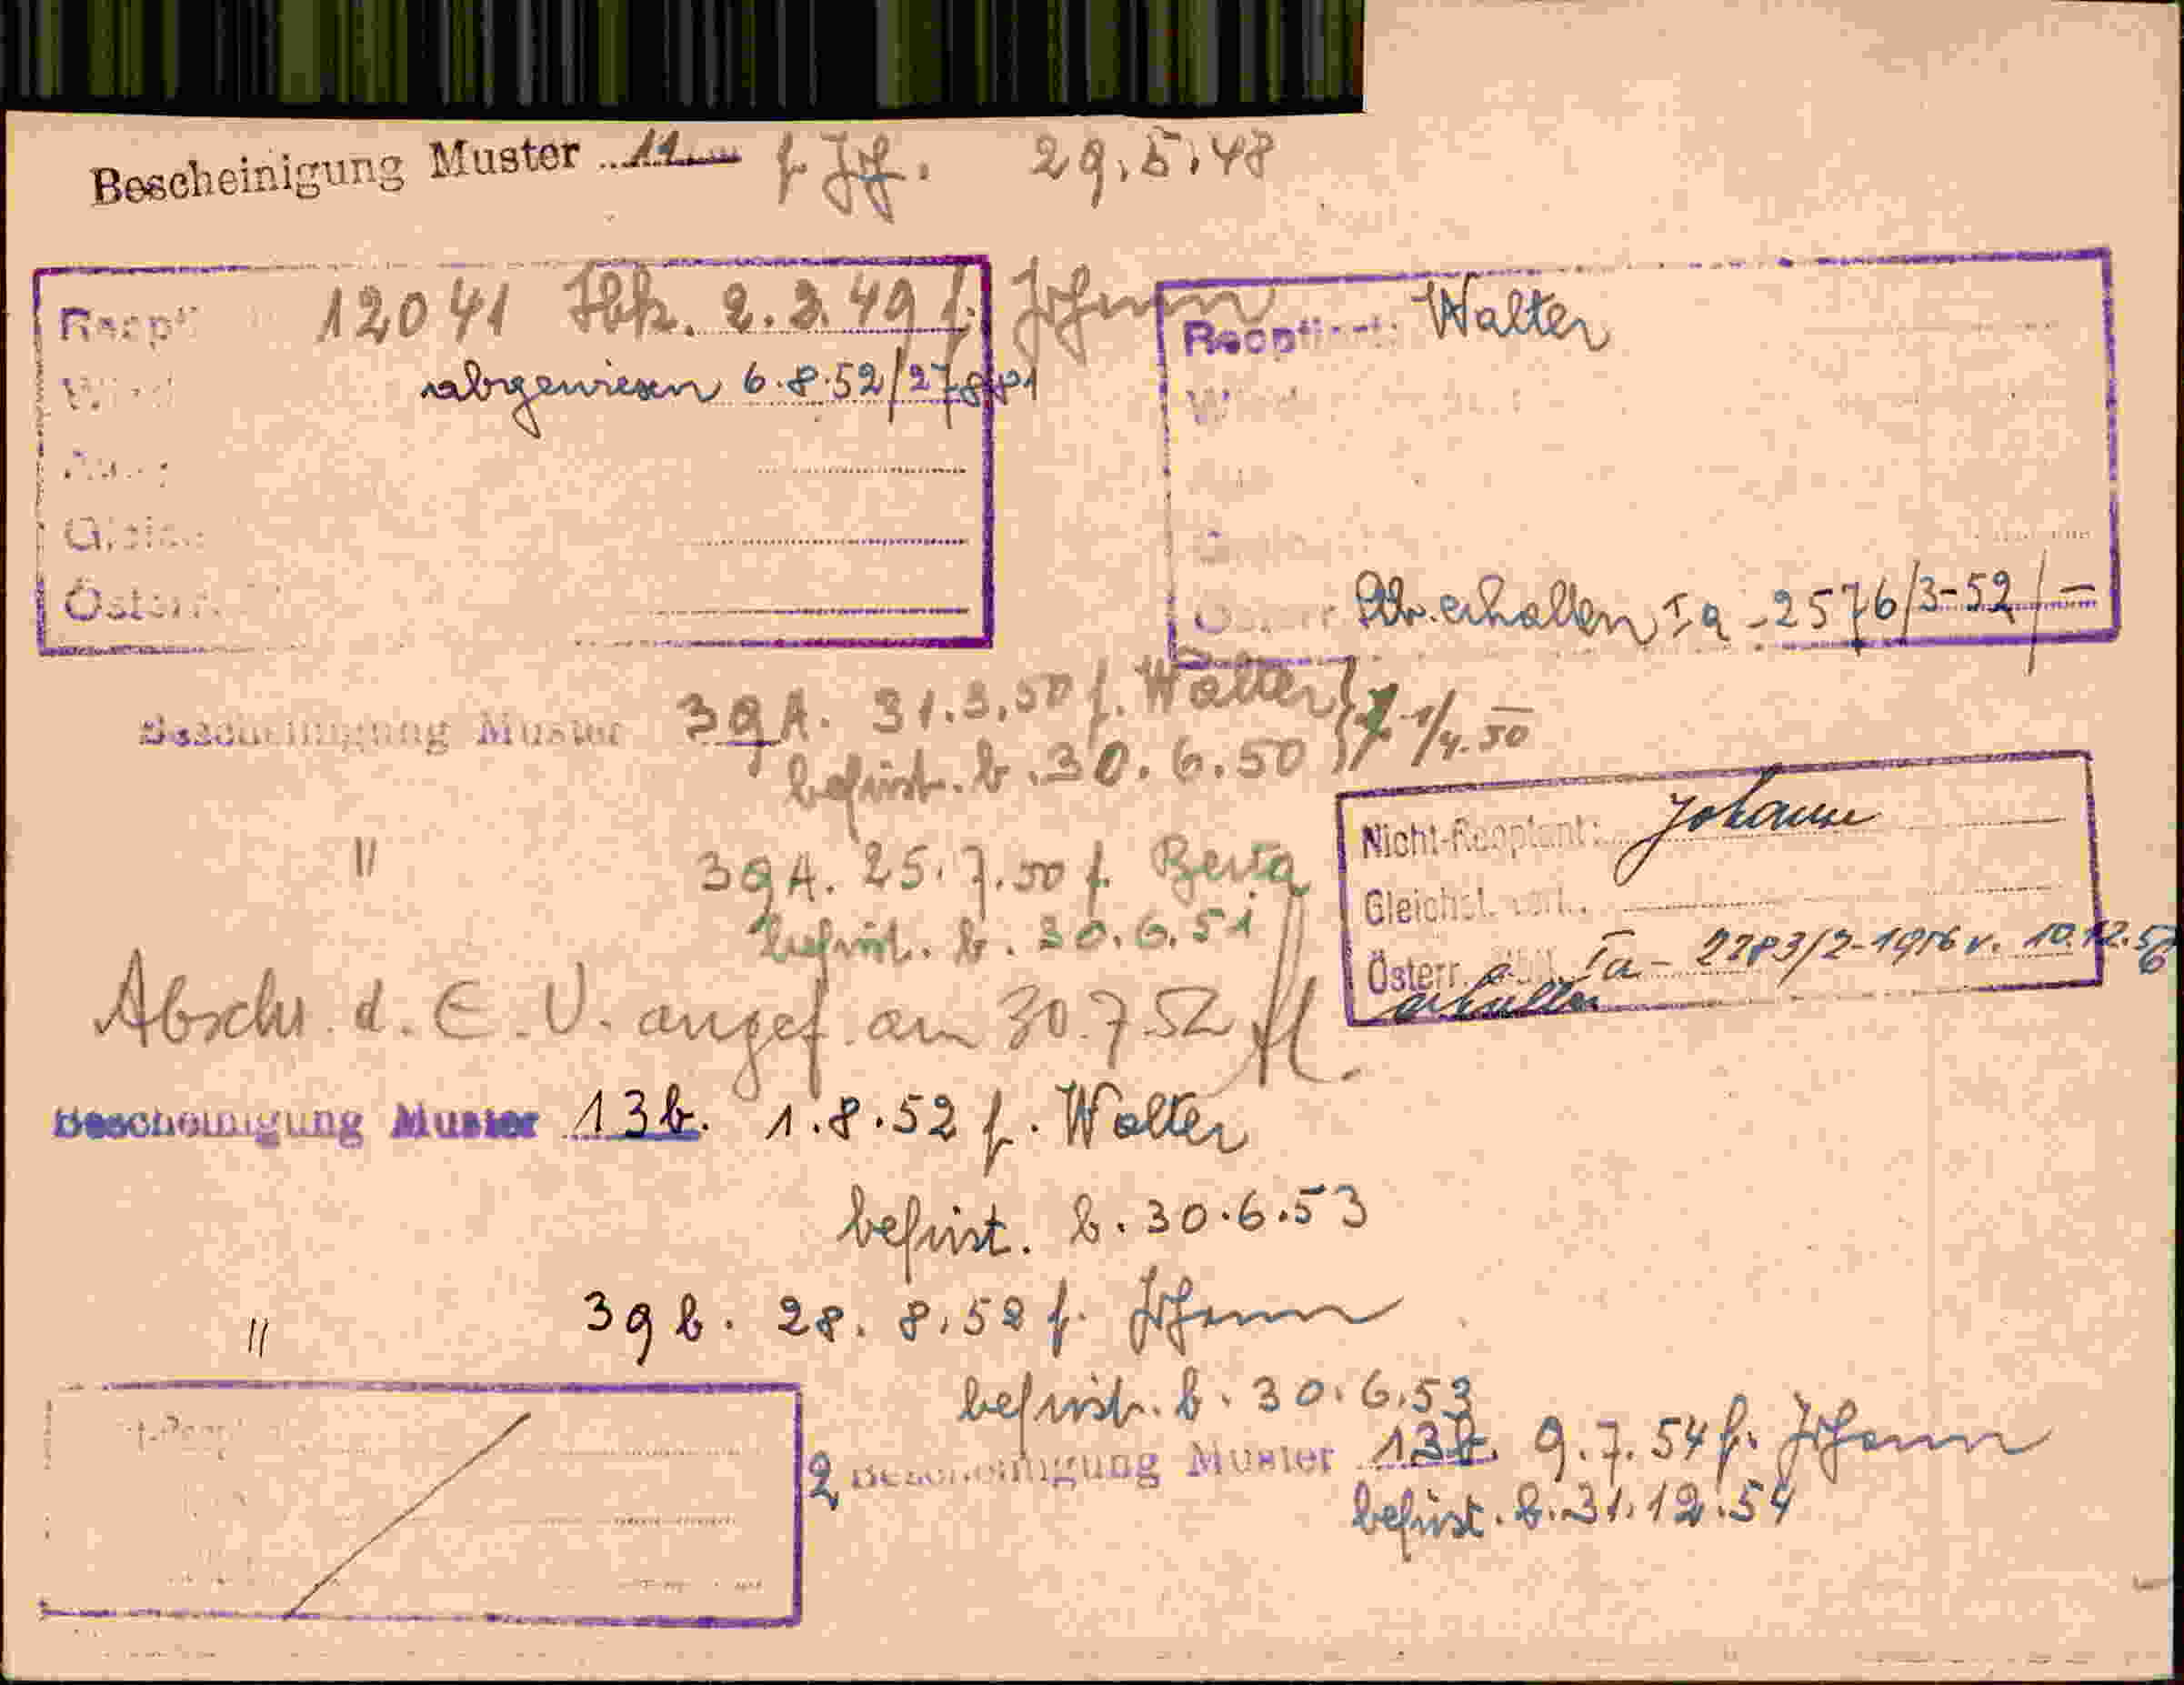 Bescheinigung Muster 11 f. Joh. 29.5.48
12041 Hbk. 2.3.49 f. Johann
abgewiesen 6.8.52/27881
Österr.
Reoptant: Walter
erhalten Ia - 2576/3-52/-
Bescheinigung Muster 39A. 31.3.50 f. Walter
befrist. b. 30.6.50 1/4.50
" 39A. 25.7.50 f. Berta
befrist. b. 30.6.51
Nicht-Reoptant: Johann
Gleichst.
Österr. Ia - 2283/2-1956 v. 10.12.56
erhalten
Abschr. d. E. V. angef. am 30.7.52
Bescheinigung Muster 13b. 1.8.52 f. Walter
befrist. b. 30.6.53
" 39b. 28.8.52 f. Johann
befrist. b. 30.6.53
2 Bescheinigung Muster 13b. 9.7.54 f. Johann
befrist. b. 31.12.54